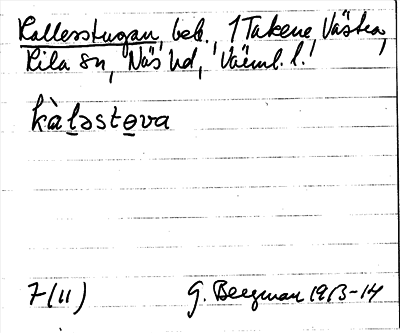 Kallesstugan, beb., 1 Takene Västra,
Kila sn, Näs hd, Värml. l.
kàl̲əsto̲va
7(11) G. Bergman 1913-14